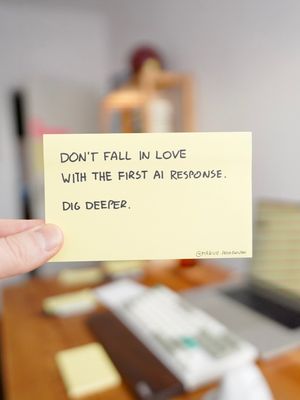 DON'T FALL IN LOVE
WITH THE FIRST AI RESPONSE.
DIG DEEPER.